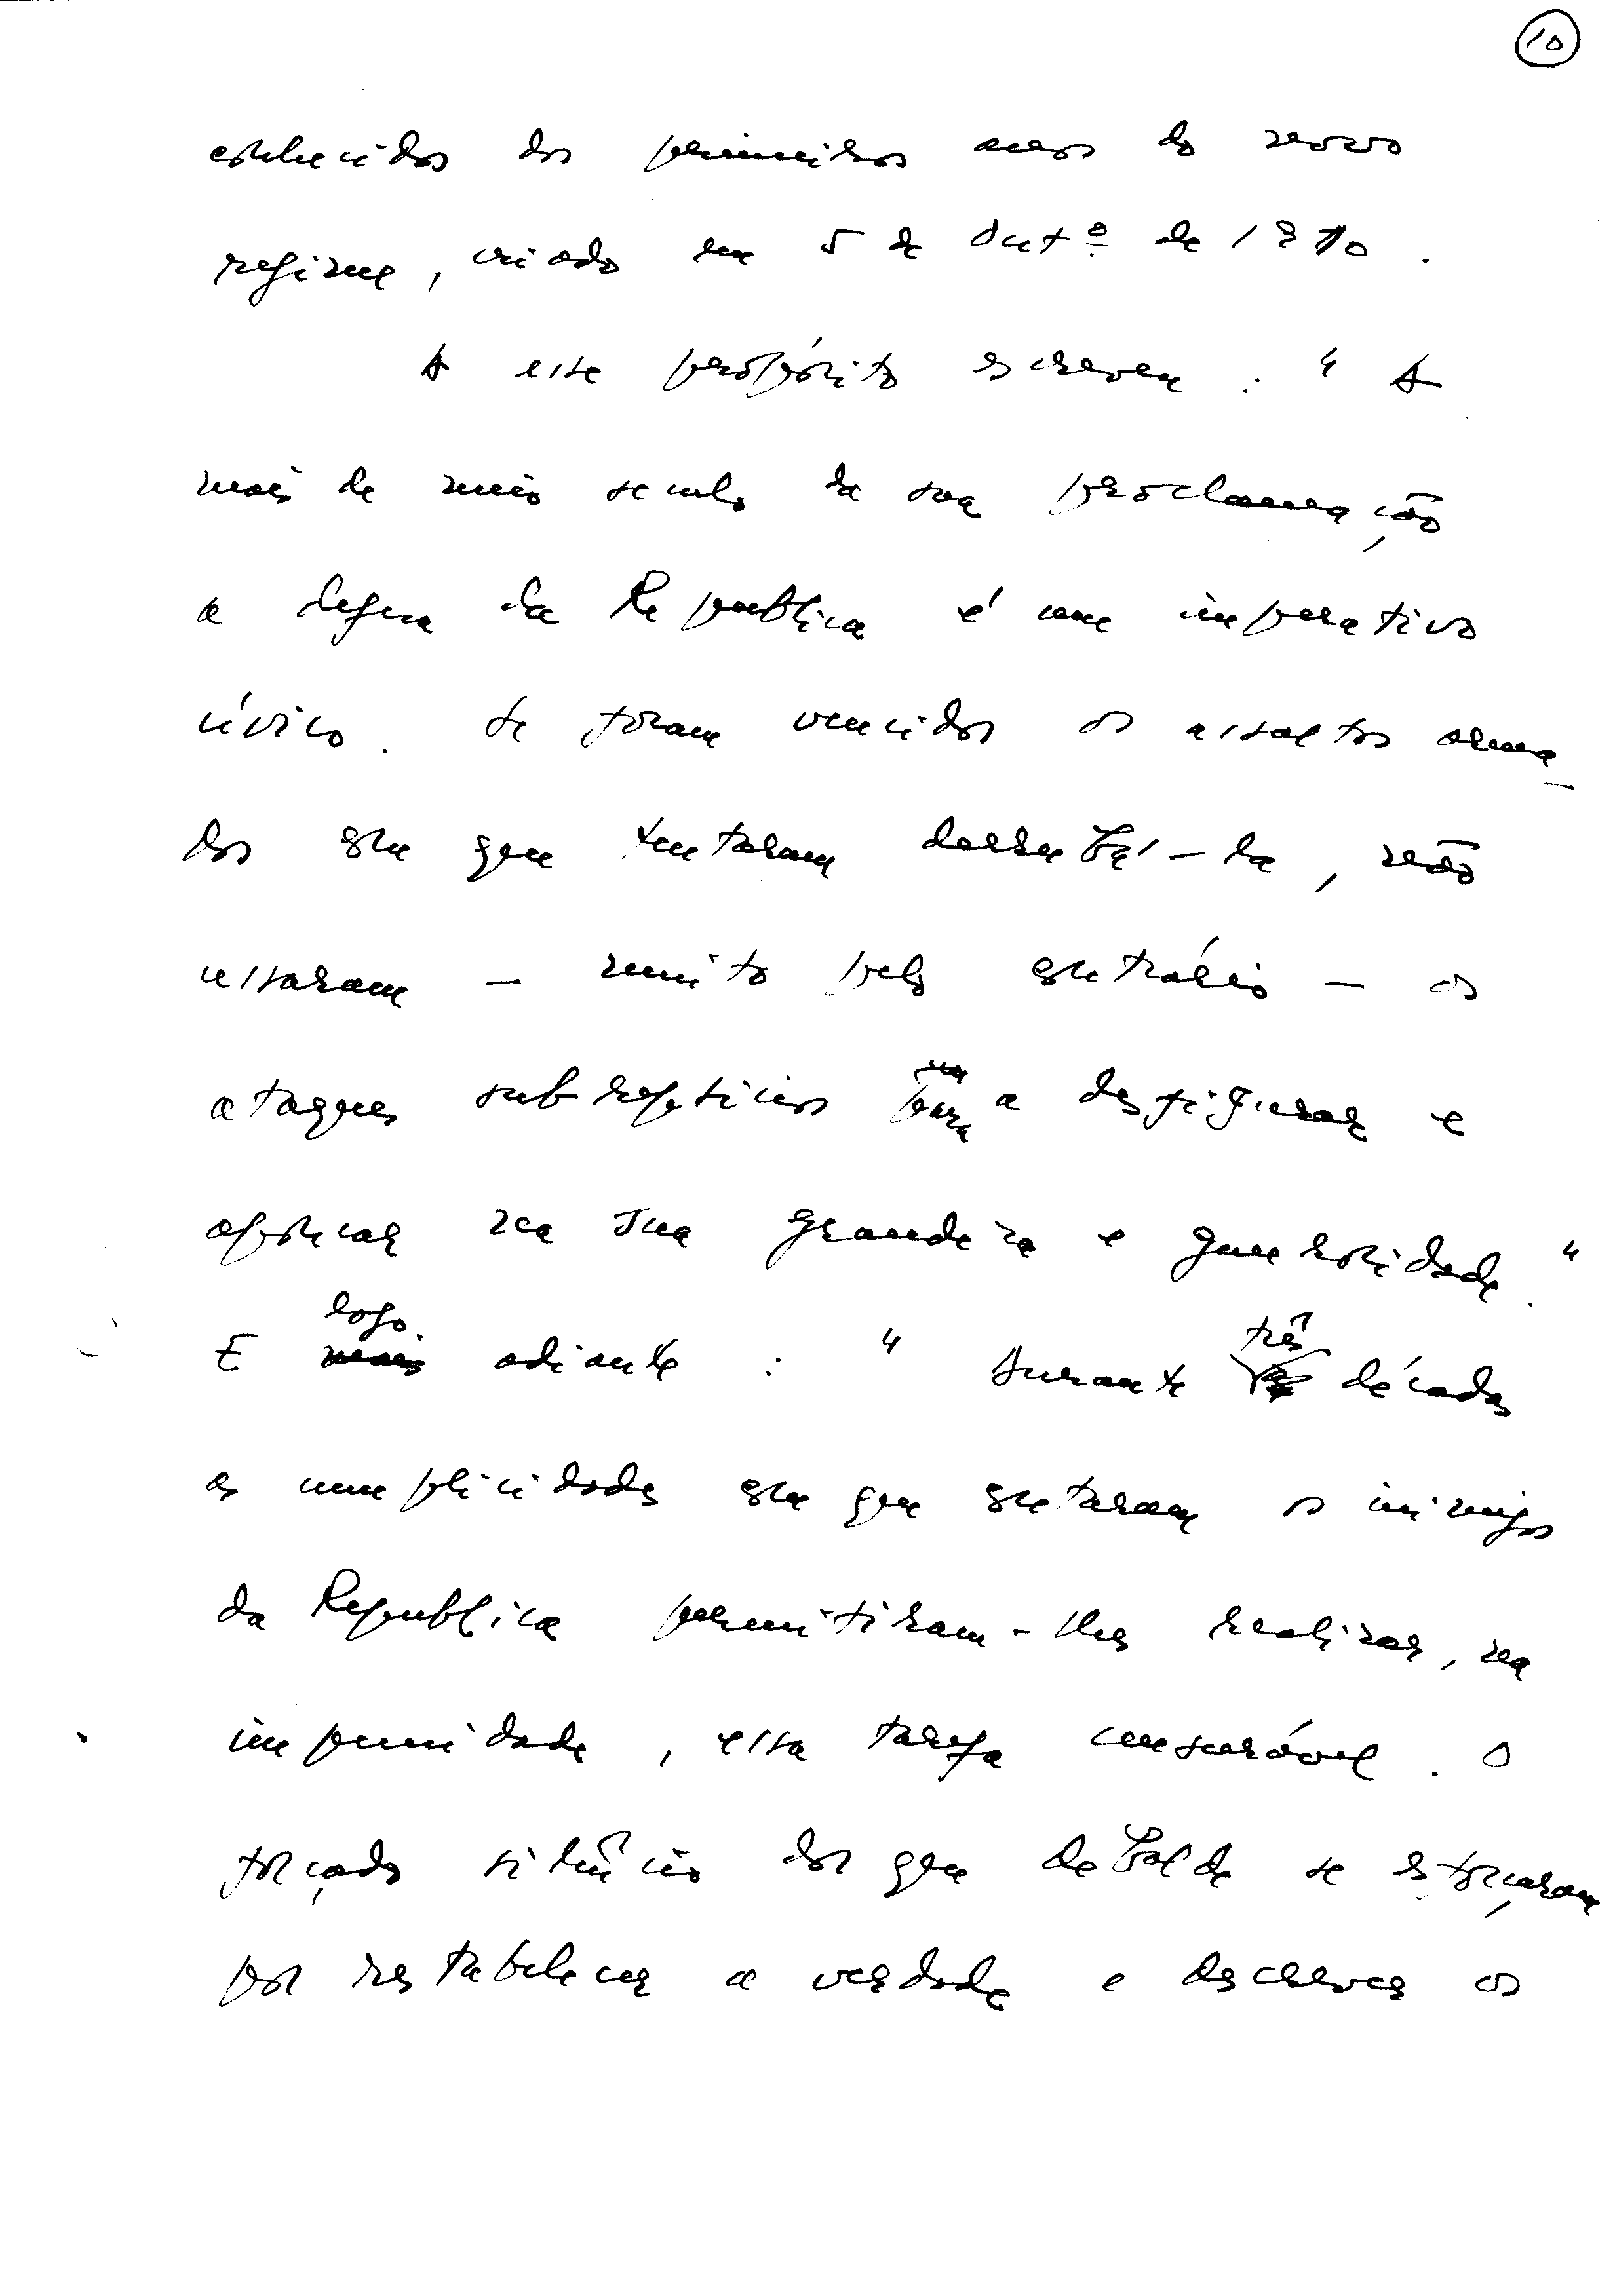 10
conhecidos dos primeiros anos do novo
regime, criado em 5 de Outº de 1910.
A esse propósito escreveu : " A
mais de meio seculo da sua proclamação
a defesa da Republica é um imperativo
cívico. Se foram vencidos os assaltos arma-
dos com que tentaram derrubá-la, não
cessaram - muito pelo contrário - os
ataques subrepticios para a desfigurar e
apoucar na sua grandeza e generosidade."
E logo adiante : " Durante três décadas
as cumplicidades com que contaram os inimigos
da Republica permitiram-lhes realizar, na
impunidade, essa tarefa censurável. O
forçado silêncio dos que debalde se esforçaram
por restabelecer a verdade e descrever os